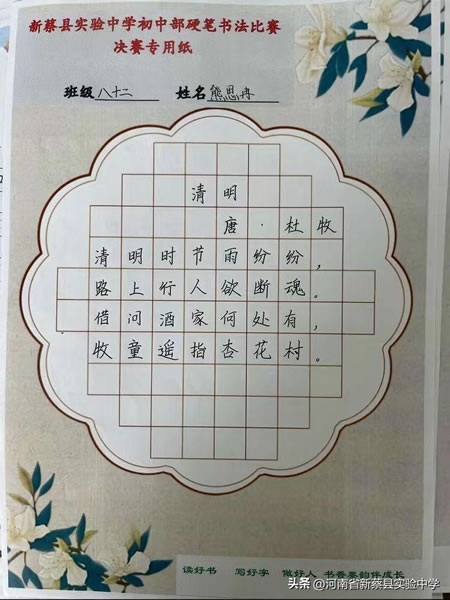 新蔡县实验中学初中部硬笔书法比赛
决赛专用纸
班级 八十二 姓名 熊思冉
清明
唐·杜牧
清明时节雨纷纷，
路上行人欲断魂。
借问酒家何处有，
牧童遥指杏花村。
读好书 写好字 做好人 书香墨韵伴成长
头条 @河南省新蔡县实验中学